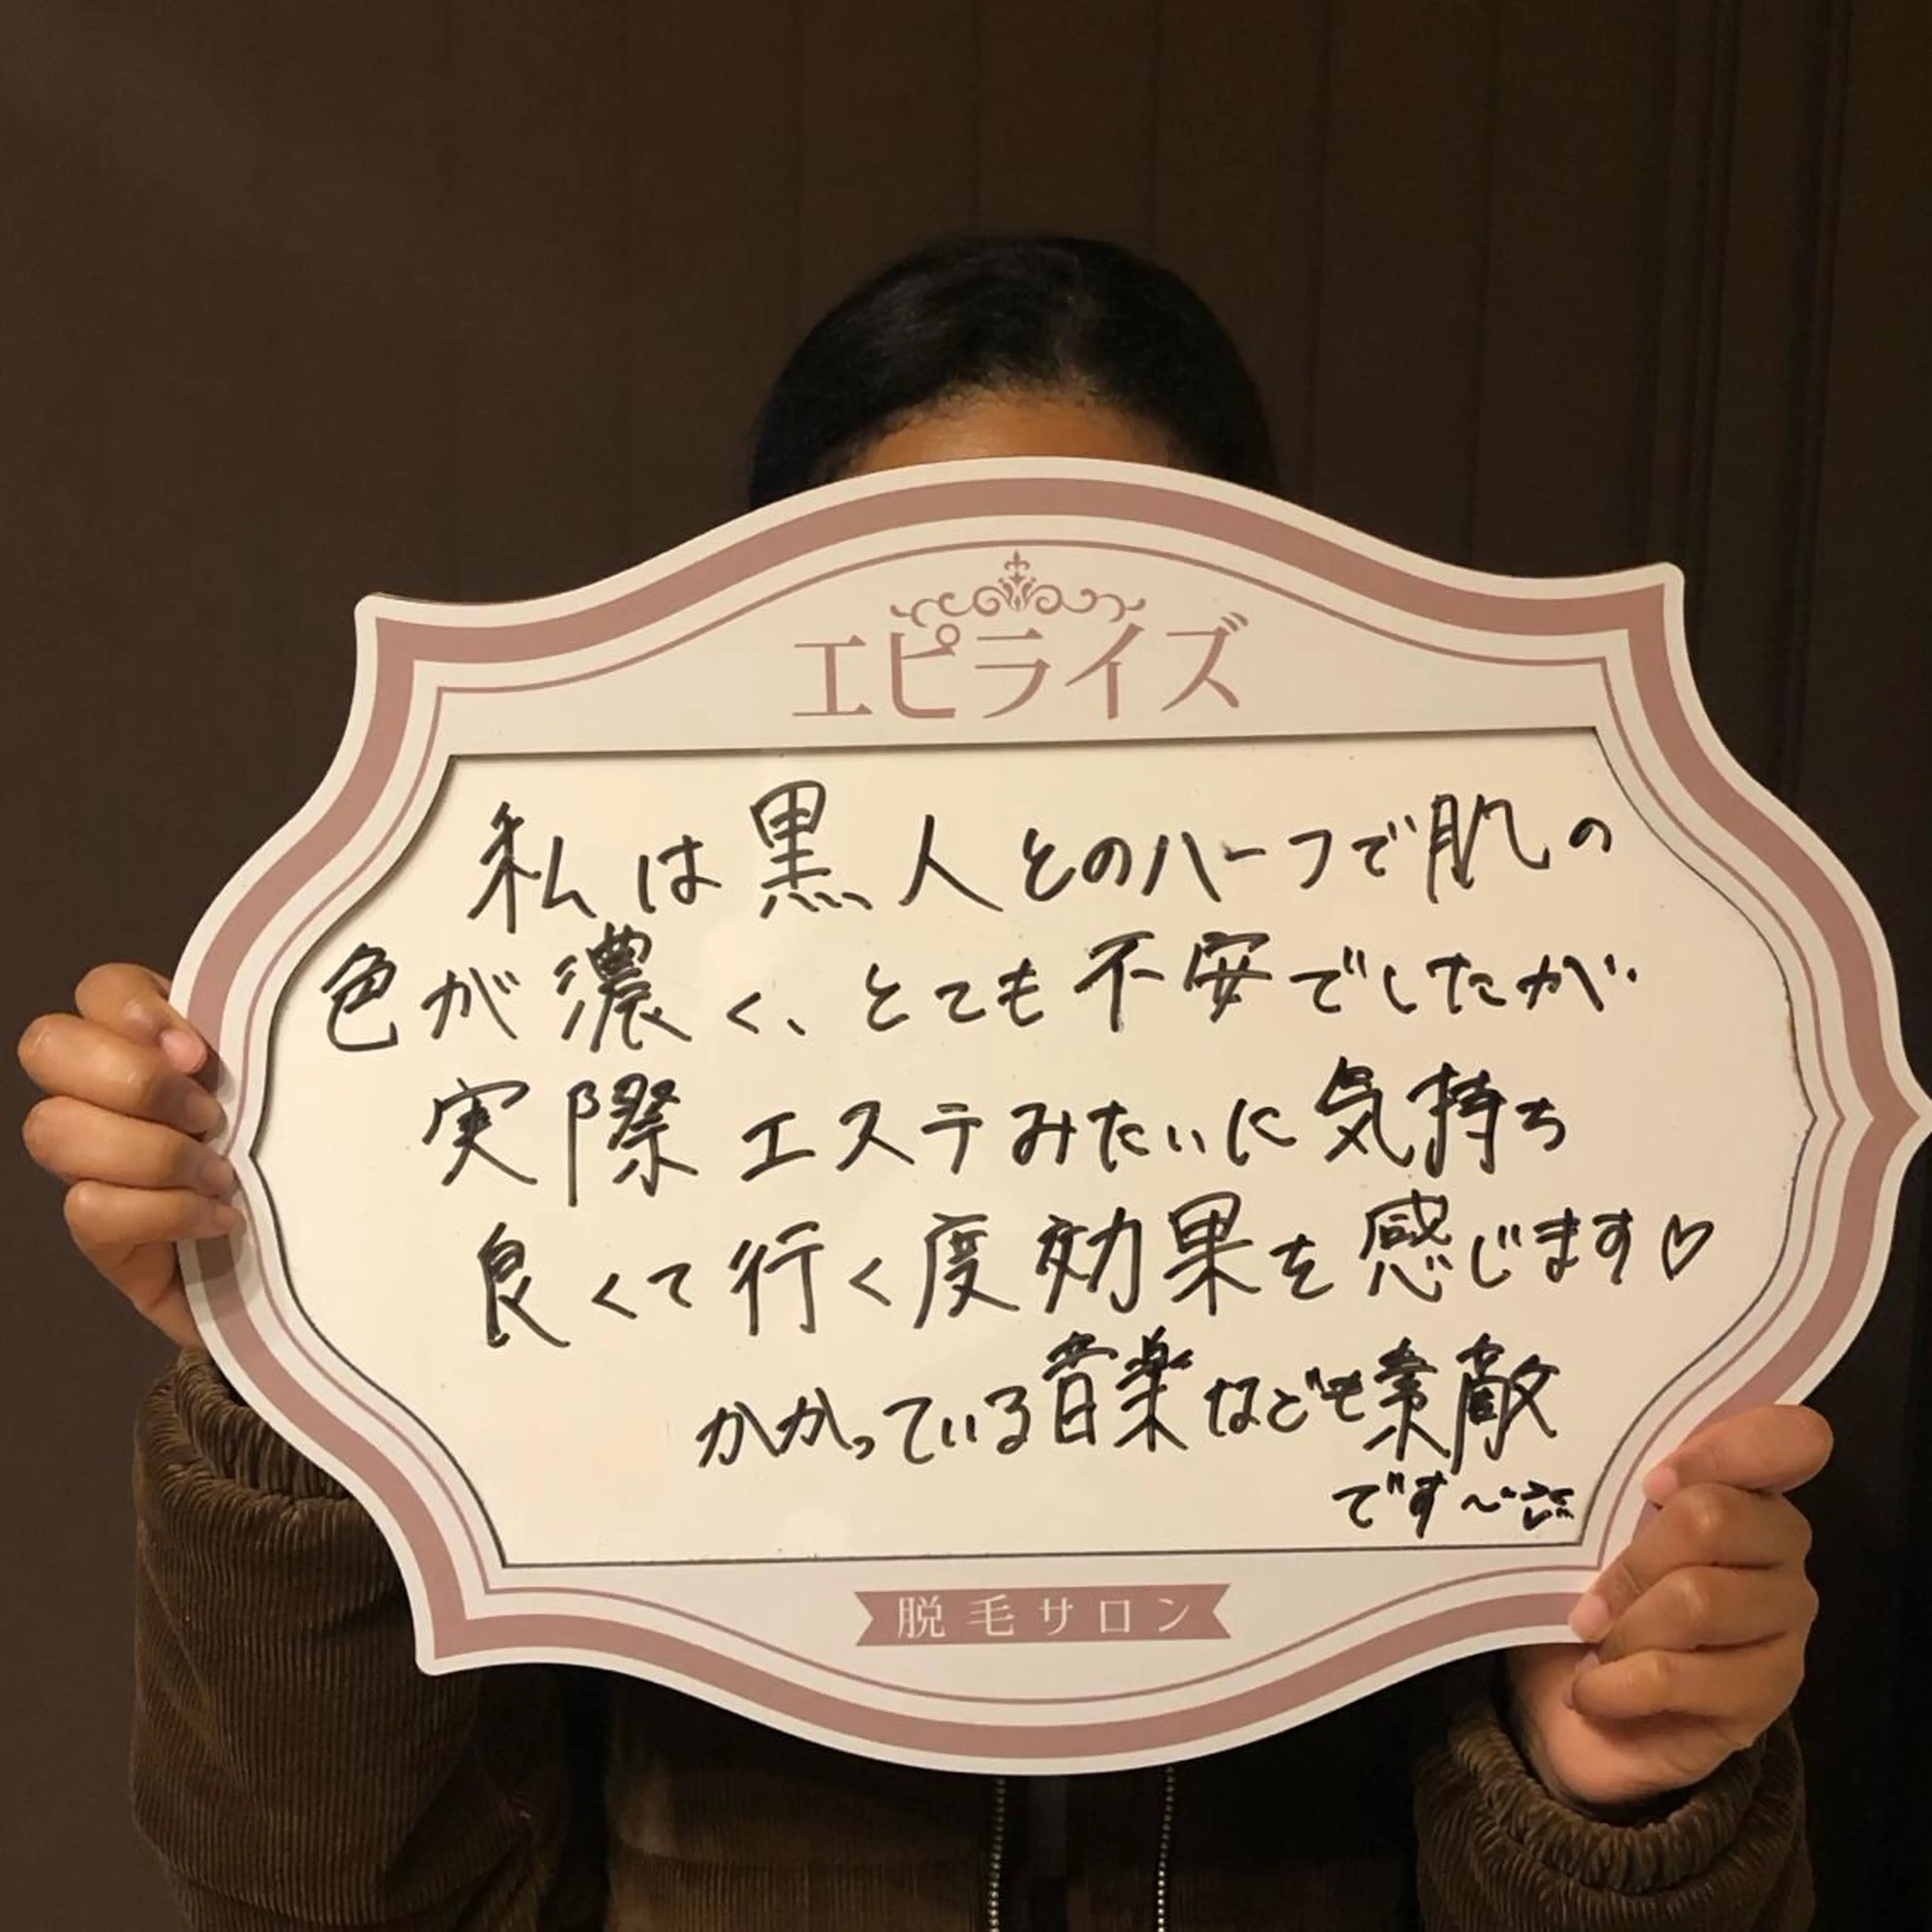 エピライズ
私は黒人とのハーフで肌の
色が濃く、とても不安でしたが
実際エステみたいに気持ち
良くて行く度効果を感じます♡
かかっている音楽なども素敵
です〜
脱毛サロン